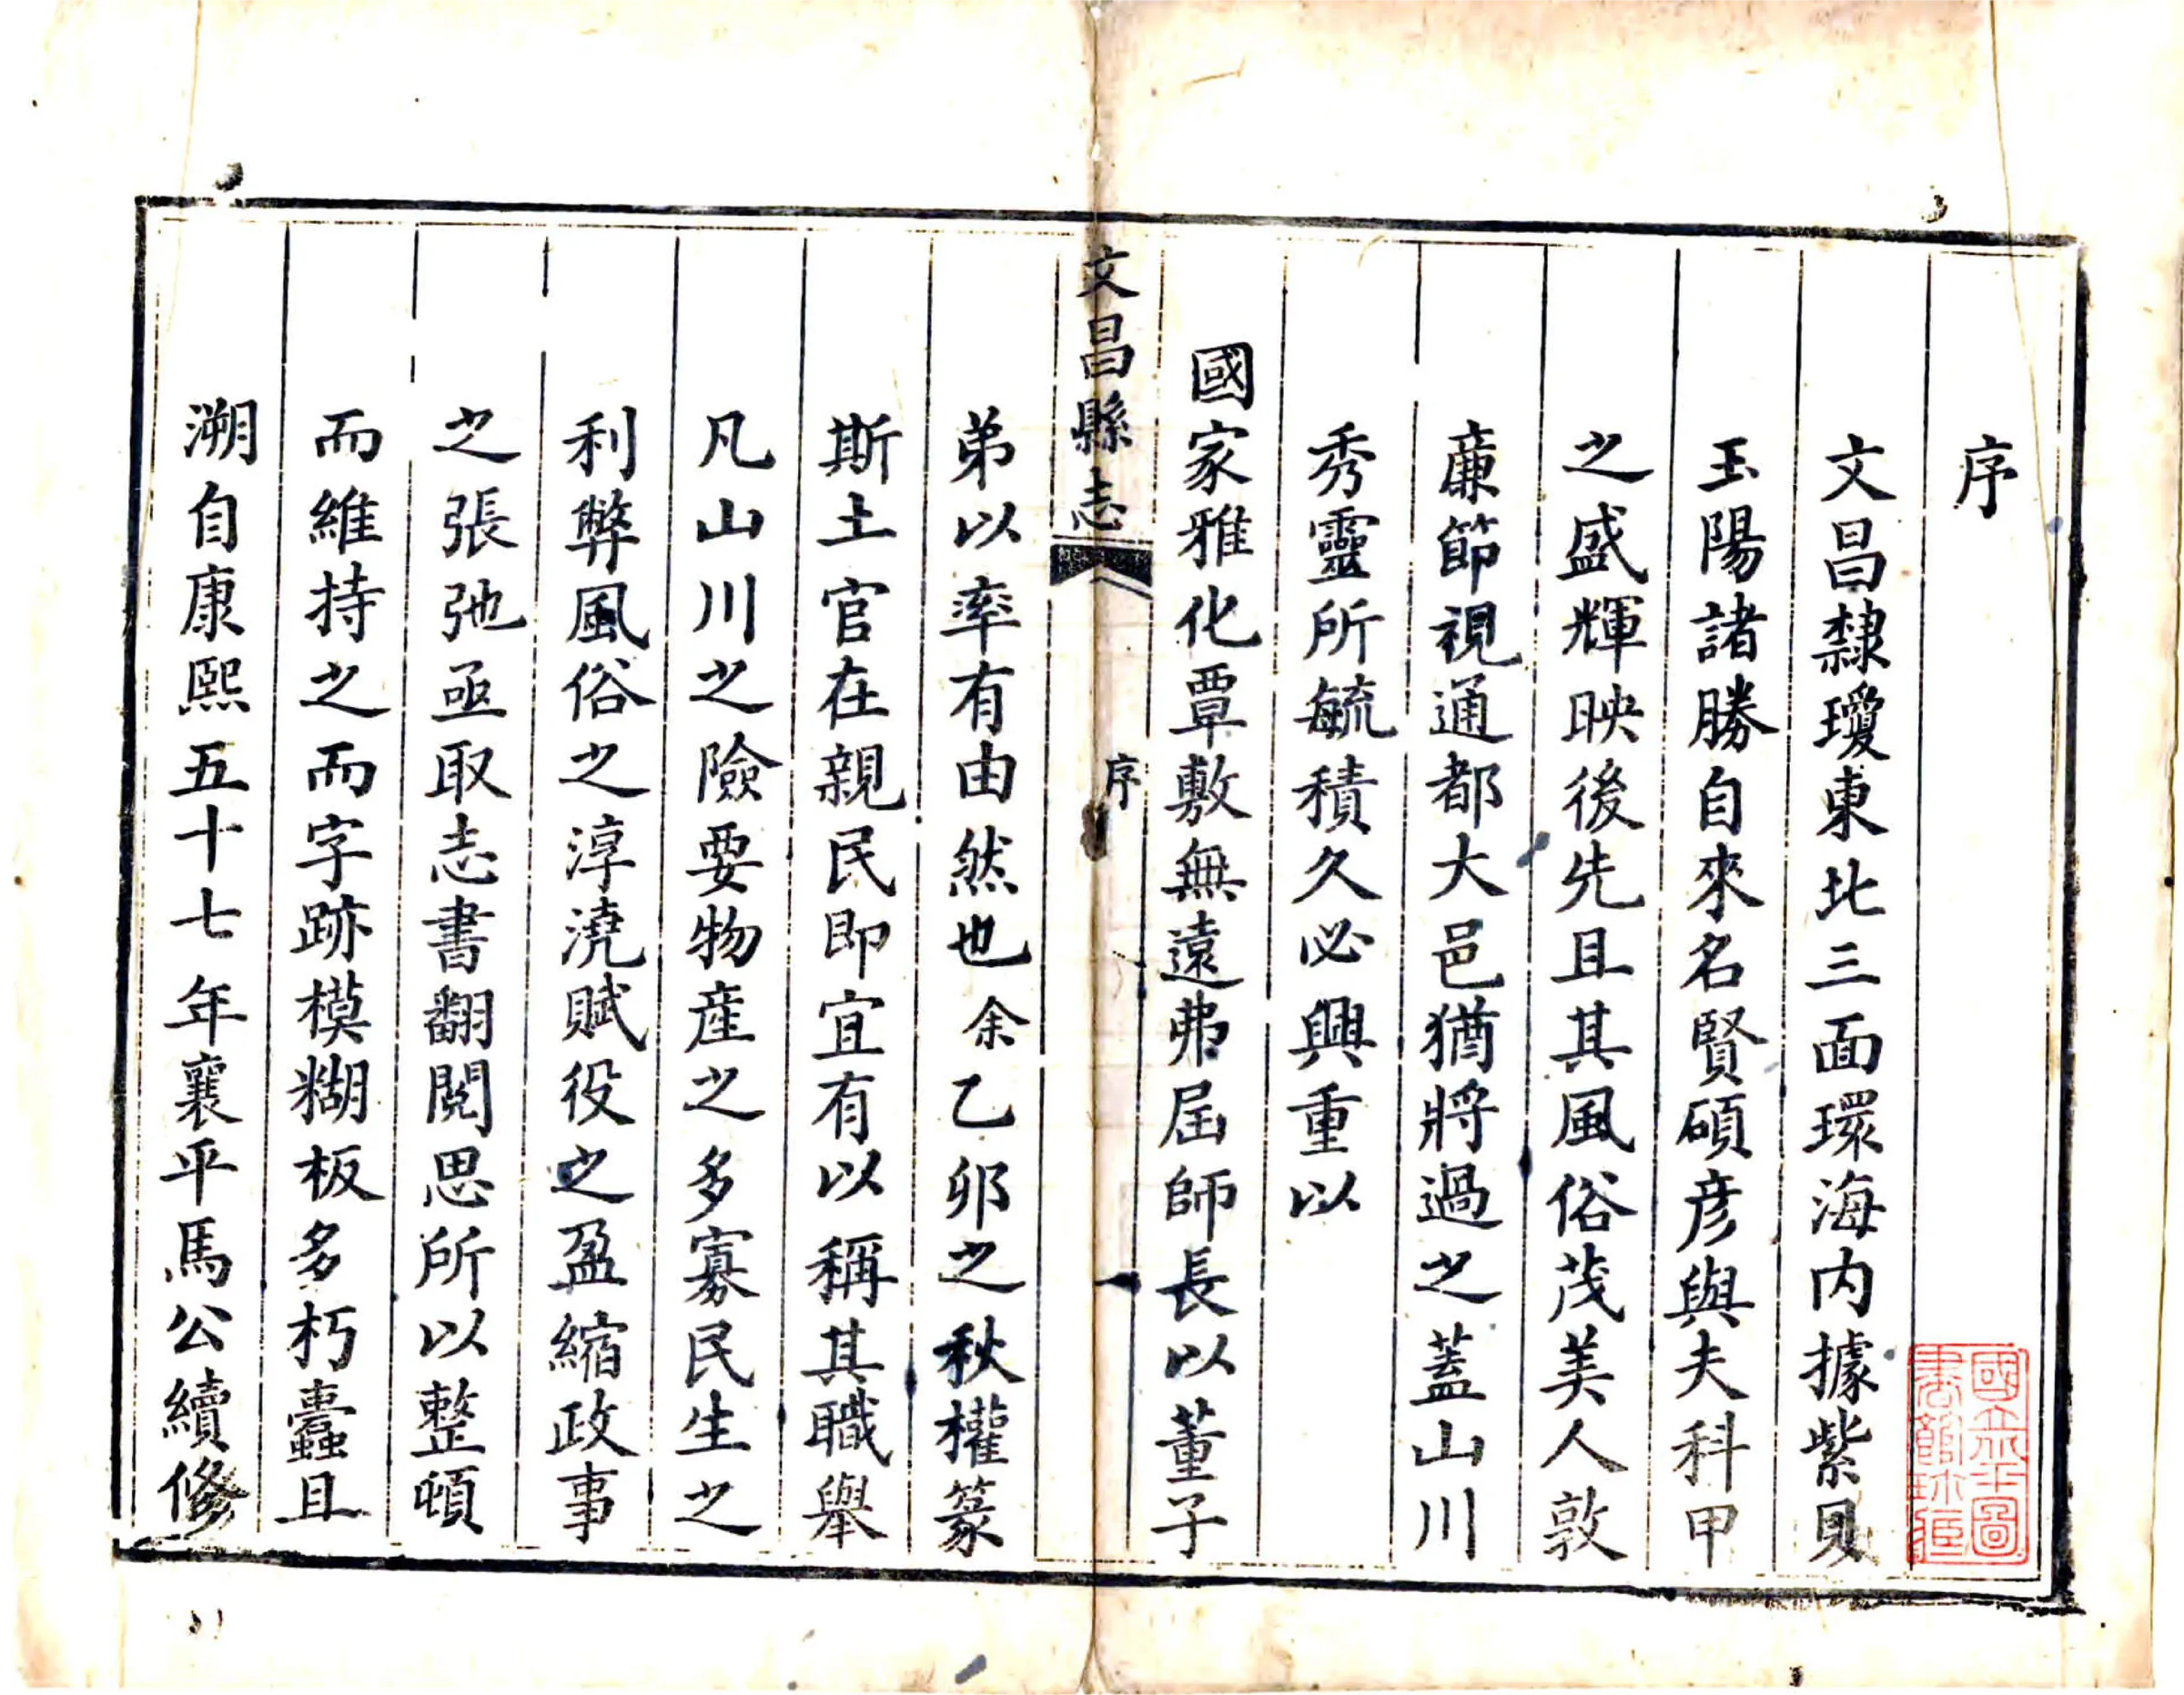 序
文昌隸瓊東北三面環海内據紫貝
玉陽諸勝自來名賢碩彦與夫科甲
之盛輝映後先且其風俗茂美人敦
亷節視通都大邑猶將過之蓋山川
秀靈所毓積久必興重以
國家雅化覃敷無遠弗屆師長以董子
文昌縣志
序
一
弟以率有由然也余乙卯之秋權篆
斯土官在親民即宜有以稱其職舉
凡山川之險要物産之多寡民生之
利弊風俗之淳澆賦役之盈縮政事
之張弛亟取志書翻閱思所以整頓
而維持之而字跡模糊板多朽蠹且
溯自康熙五十七年襄平馬公續修
國立北平圖
書館珍藏